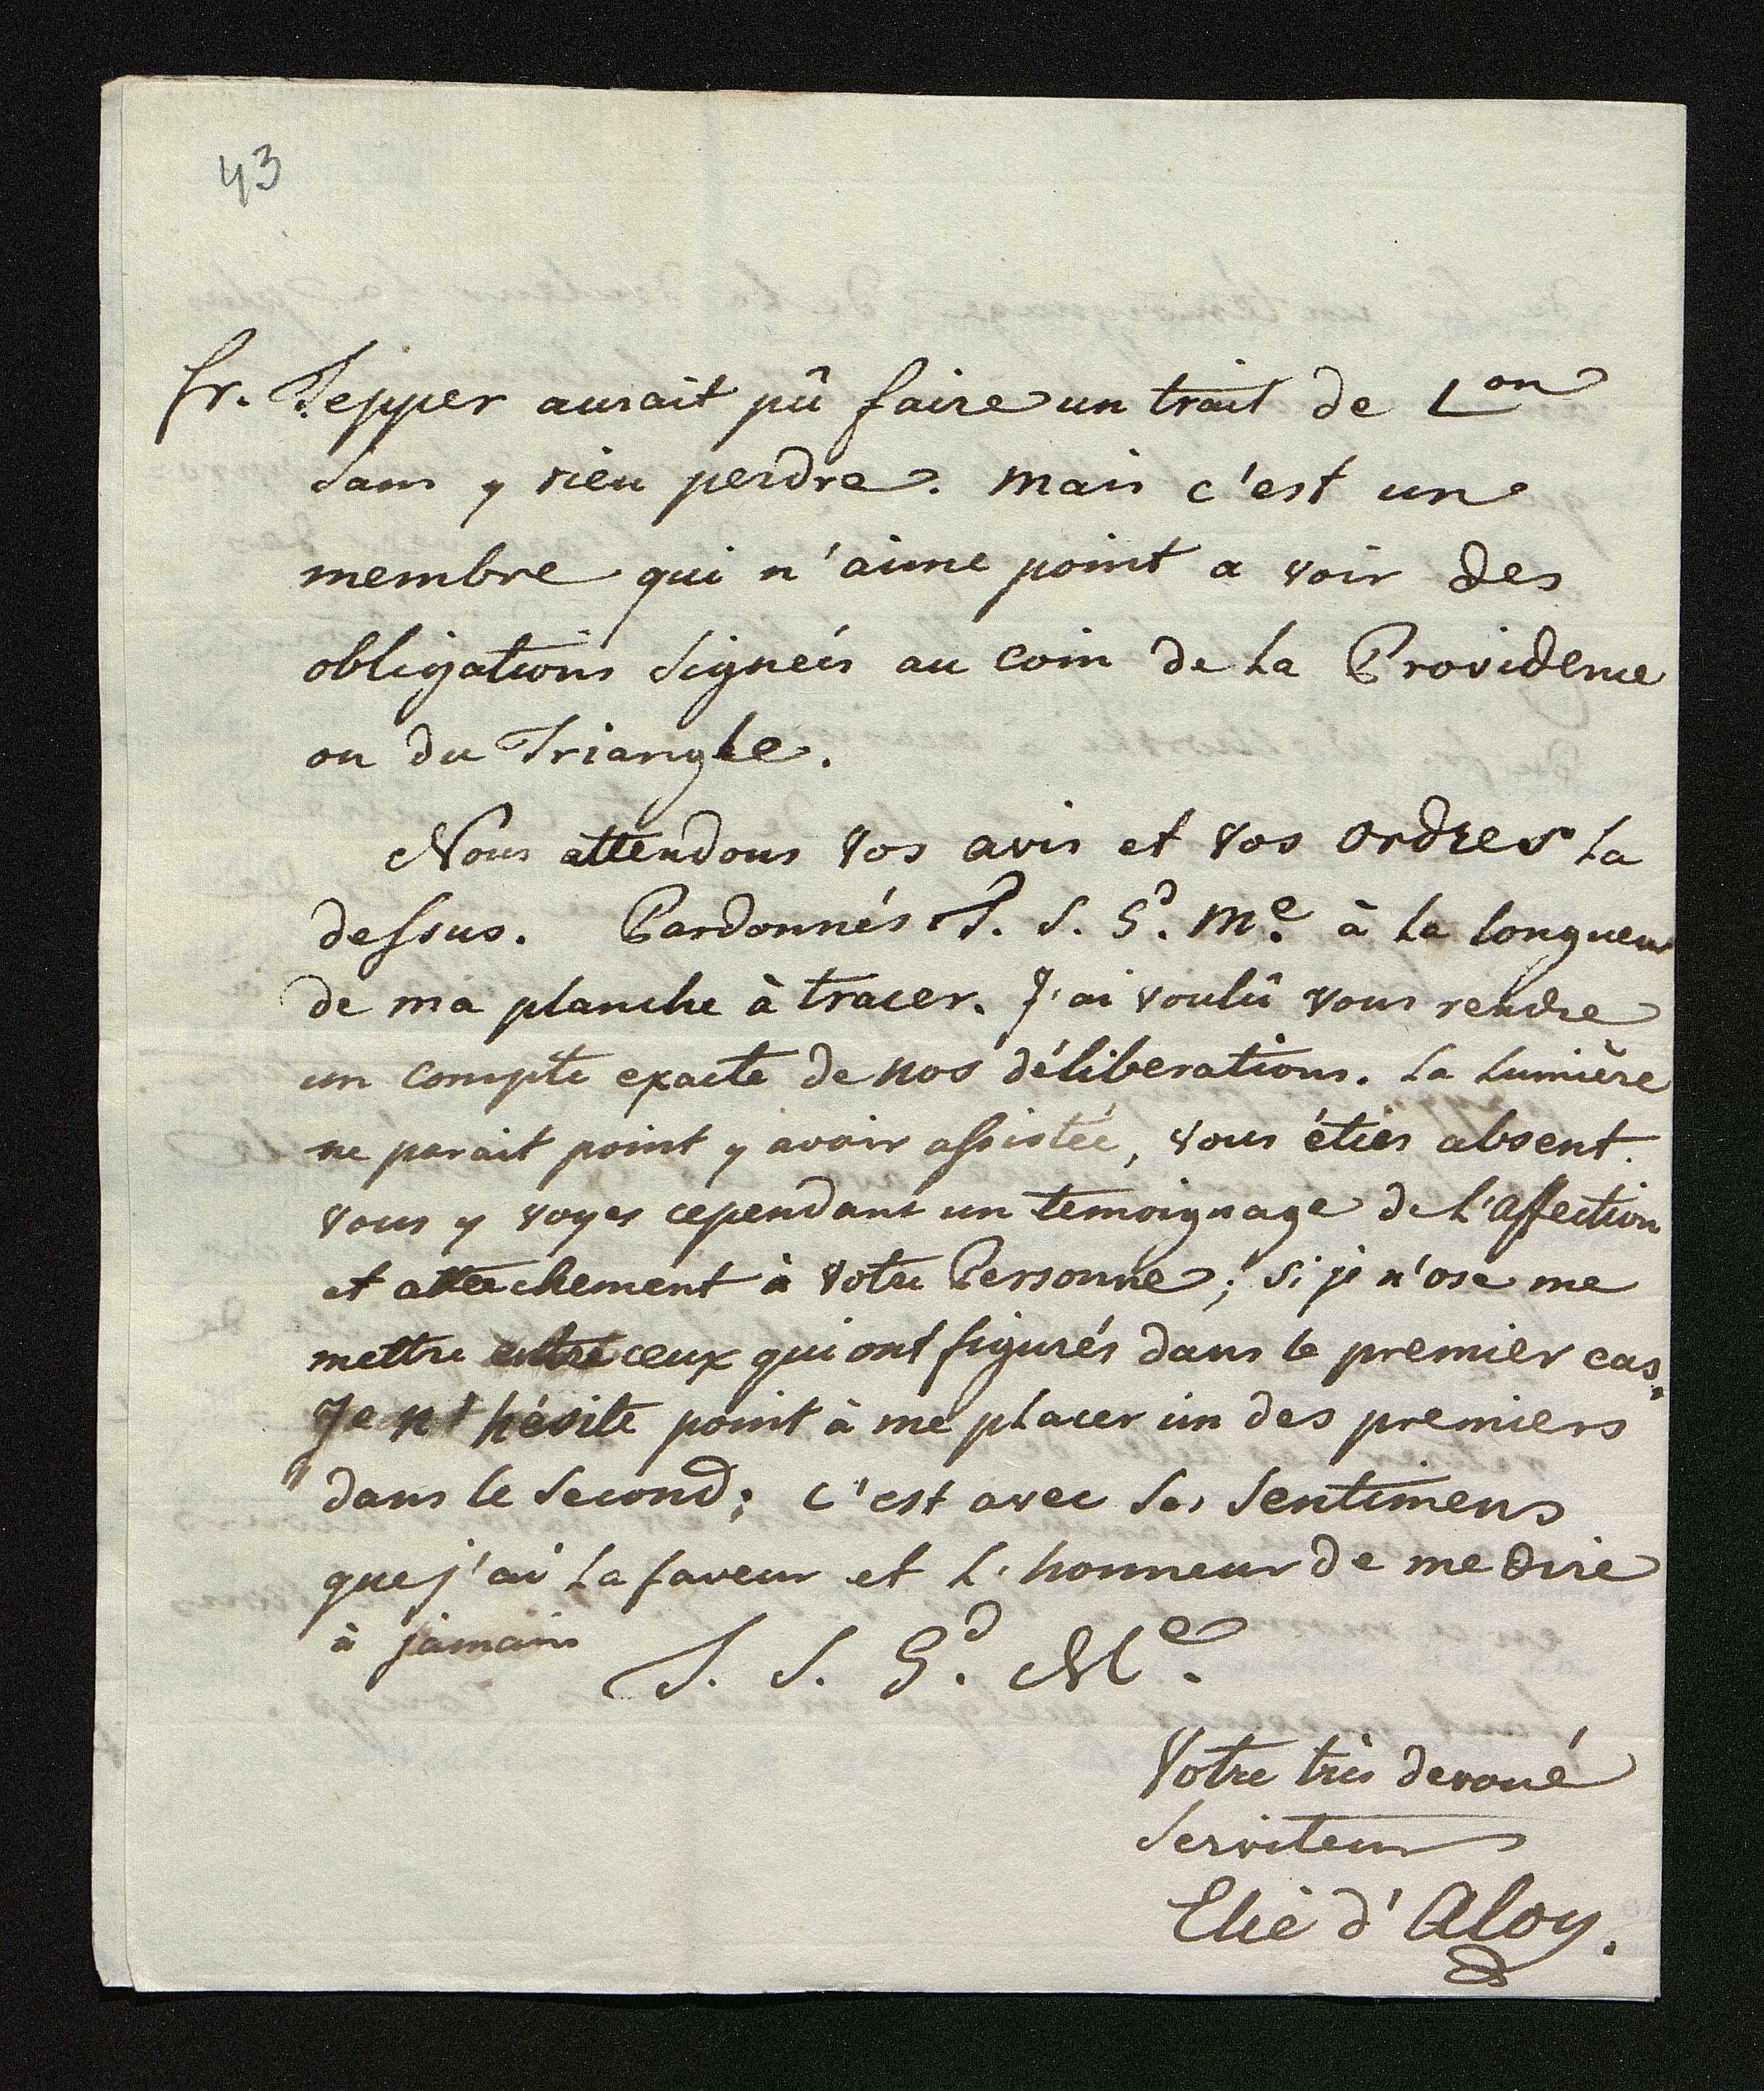 43
fr. Tepper aurait pû faire un trait de L^on
sans y rien perdre. mais c'est un
membre qui n'aime point a voir des
obligations signeés au coin de la Providence
ou du Triangle.
Nous attendons vos avis et vos ordres la
dessus. Pardonnés T. S. G^d. M^e. à la longueur
de ma planche à tracer. J'ai voulû vous rendre
un compte exacte de nos déliberations. la lumière
ne parait point y avoir assistée, vous étiés absent.
vous y voyes cependant un temoignage de l'affection
et attachement à votre Personne; si je n'ose me
mettre entre ceux qui ont figurés dans le premier cas,
Je n'hésite point à me placer un des premiers
dans le second; c'est avec ses sentimens
que j'ai la faveur et l'honneur de me dire
à jamais T. S. G^d. M^e.
Votre très devoué
Serviteur
Elie d'Aloy.